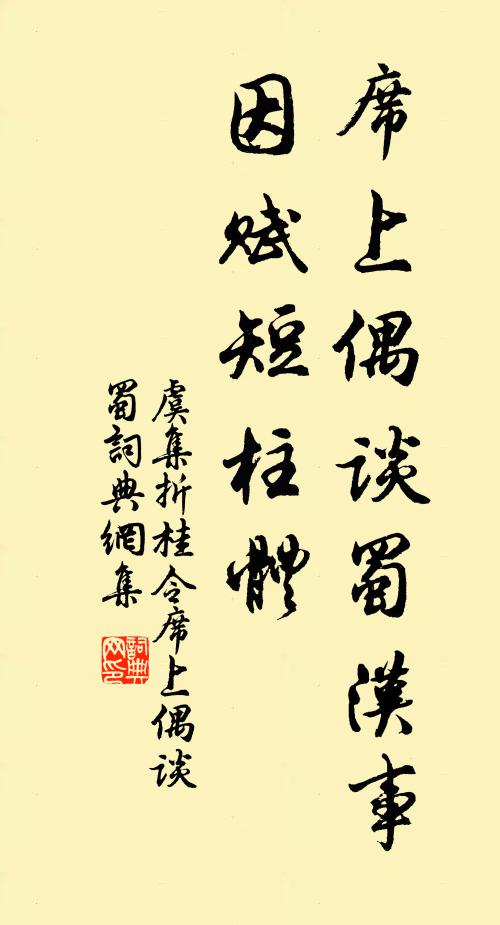 席上偶谈蜀漢事
因赋短柱體
虞集折桂令席上偶谈
蜀詞典網集
詞典
网印